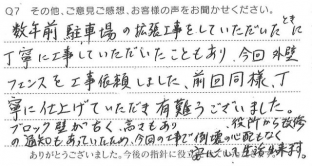 Q7 その他、ご意見ご感想、お客様の声をお聞かせください。
数年前駐車場の拡張工事をしていただいたときに
丁寧に工事していただいたこともあり、今回外壁
フェンスを工事依頼しました、前回同様、丁
寧に仕上げていただき有難うございました。
ブロック壁が古く、高さもあり 役所から改修
の通知もあっていたため、今回の工事で倒壊の心配もなく
ありがとうございました。今後の指針に役 安心して生活出来ます。